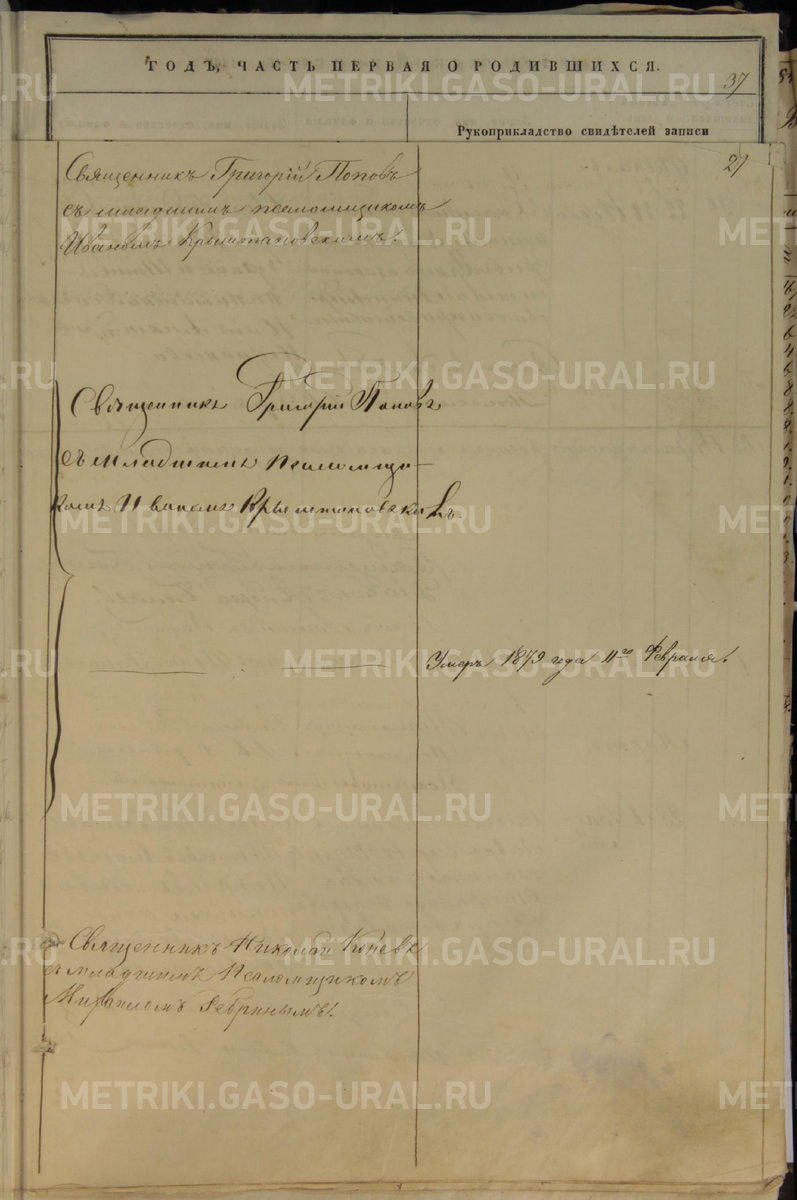 ГОДЪ, ЧАСТЬ ПЕРВАЯ О РОДИВШИХСЯ.
37
Рукоприкладство свидѣтелей записи
Священникъ Григорій Поповъ
съ младшимъ псаломщикомъ
Иваномъ
Священникъ Григорій Поповъ
съ младшимъ Псаломщи-
комъ Иваномъ
Умеръ 1879 года 11го Февраля.
Священникъ Николай Коневъ
съ младшимъ Псаломщикомъ
Михаиломъ Ребринымъ.
METRIKI.GASO-URAL.RU